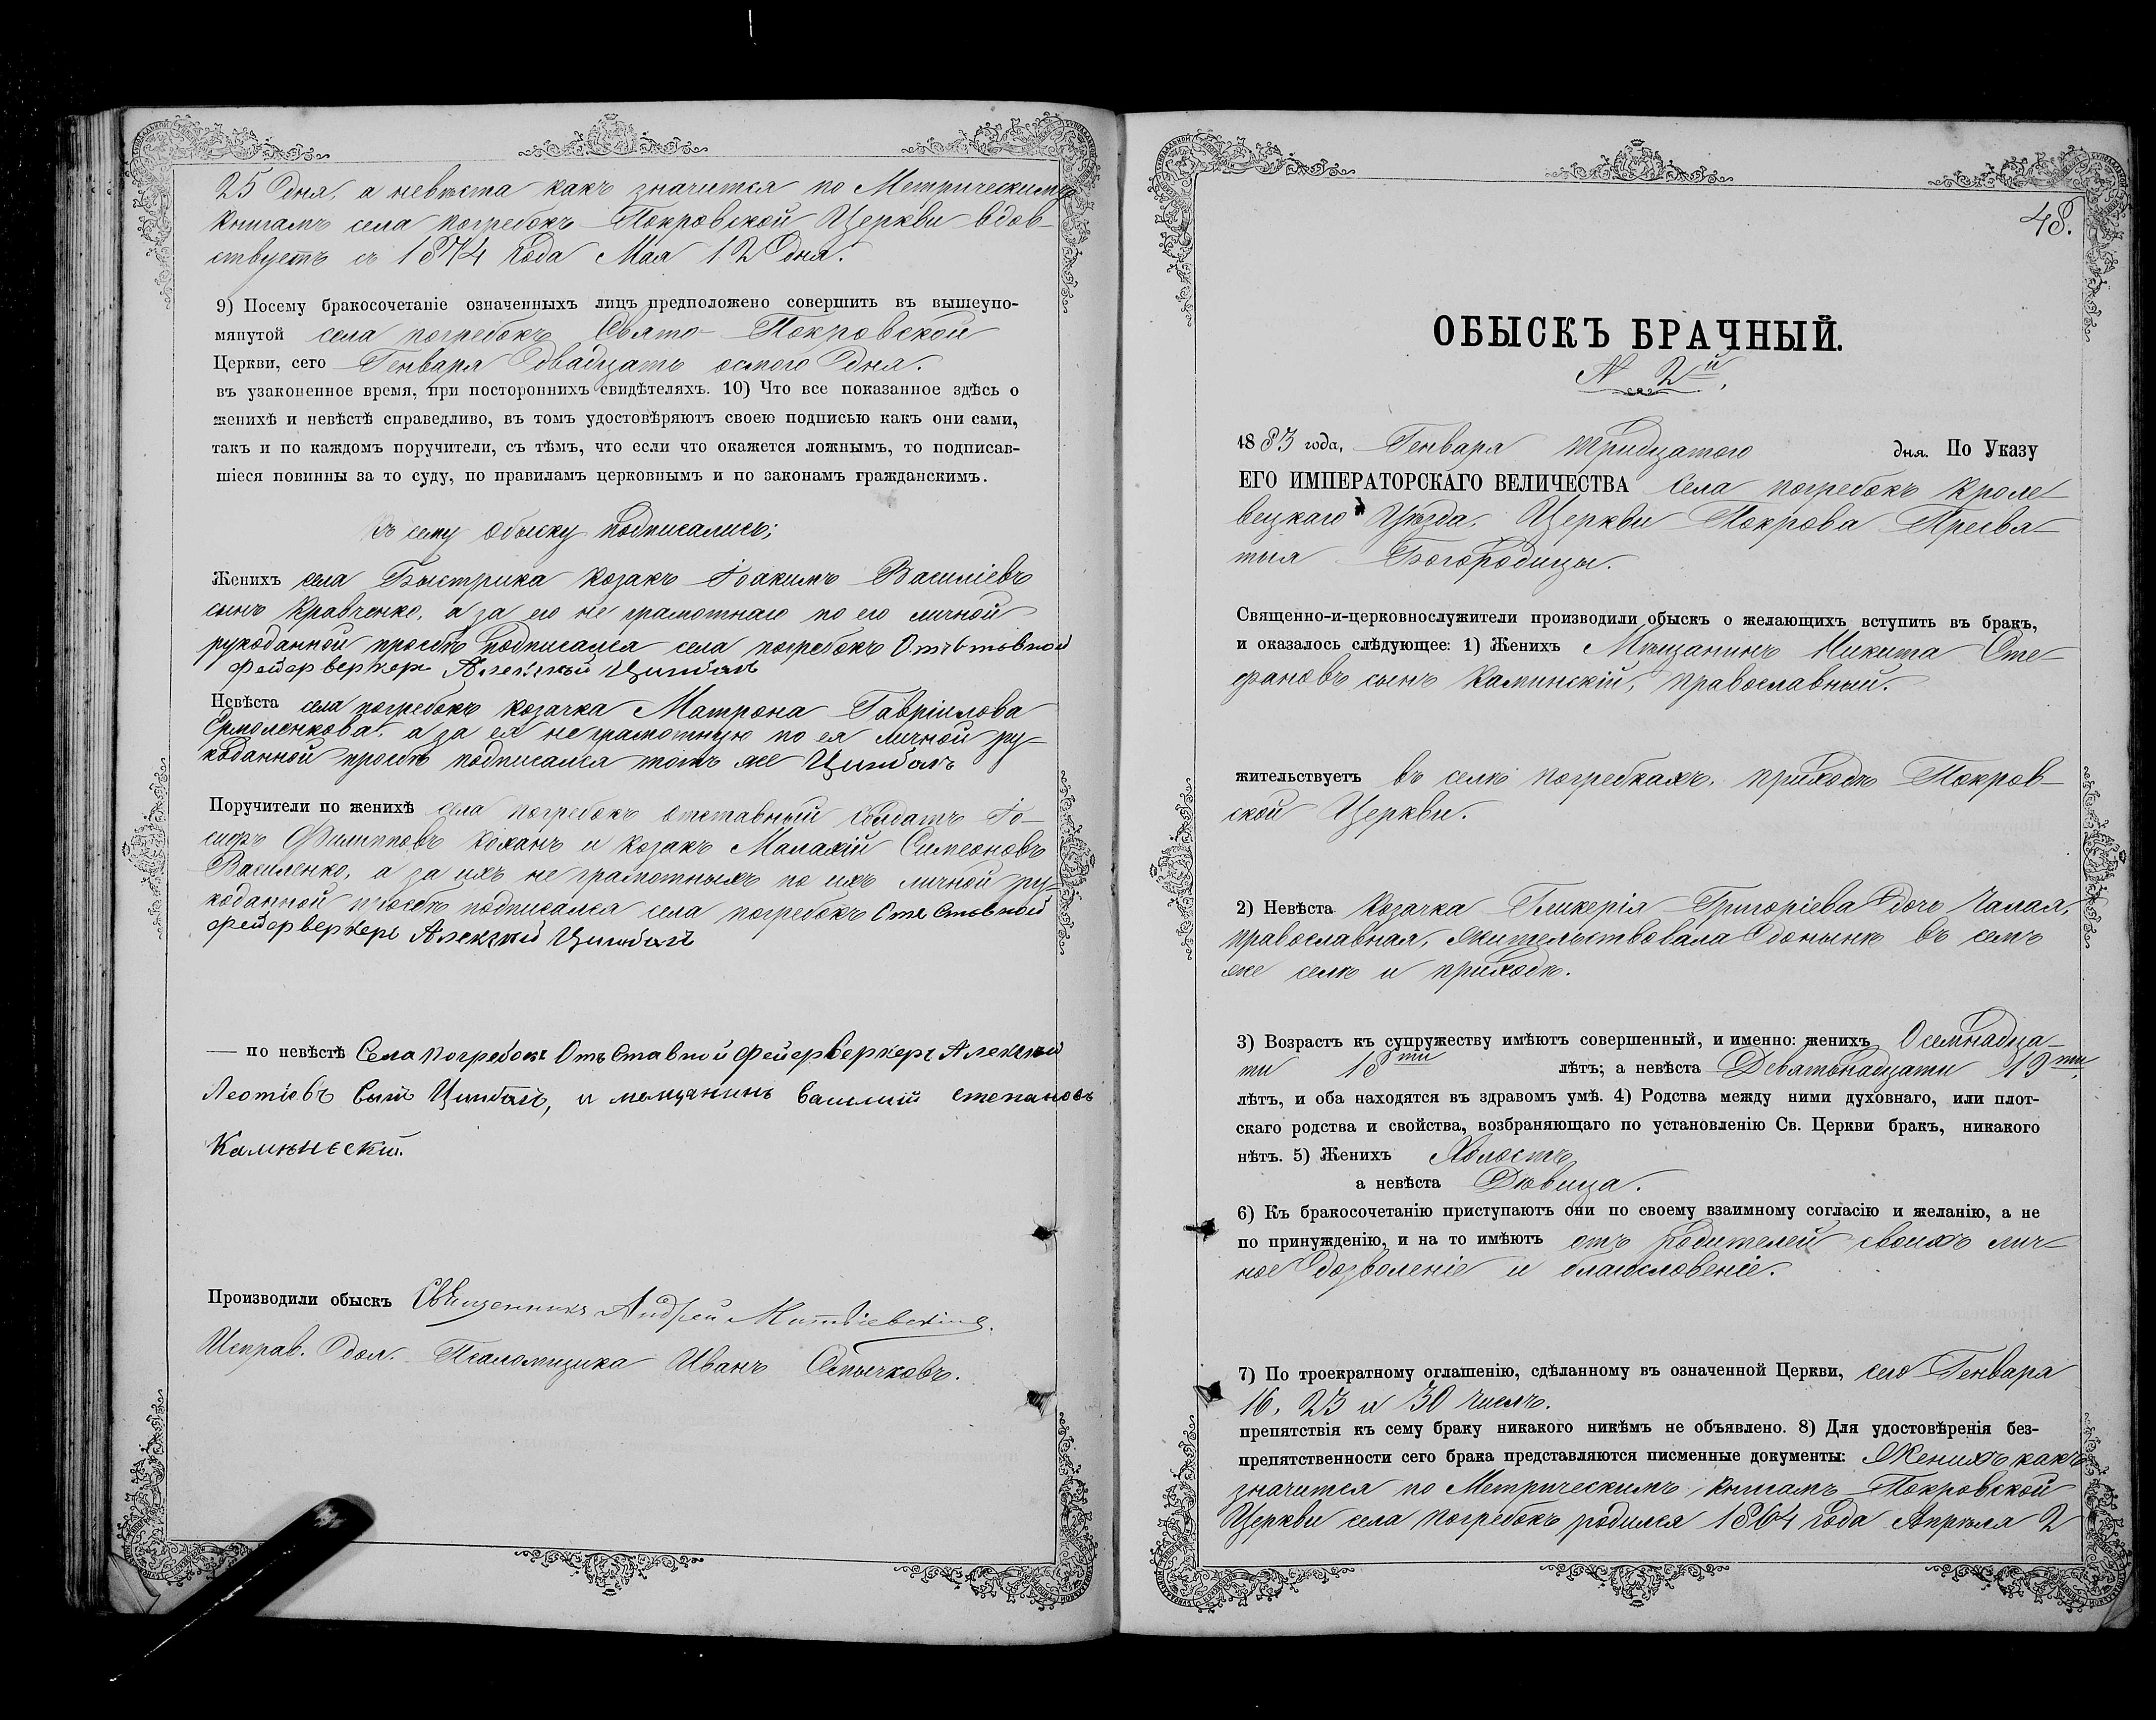 25 дня, а невѣста какъ значится по Метрическимъ
книгамъ села погребокъ Покровской Церкви вдов-
ствуетъ съ 1874 года Мая 12 дня.
9) Посему бракосочетаніе означенныхъ лицъ предположено совершить въ вышеупо-
мянутой села погребокъ Свято-Покровской
Церкви, сего Генваря двадцать осмого дня.
въ узаконенное время, при постороннихъ свидѣтеляхъ. 10) Что все показанное здѣсь о
женихѣ и невѣстѣ справедливо, въ томъ удостовѣряютъ своею подписью какъ они сами,
такъ и по каждомъ поручители, съ тѣмъ, что если что окажется ложнымъ, то подписав-
шіеся повинны за то суду, по правиламъ церковнымъ и по законамъ гражданскимъ.
Къ сему обыску подписались:
Женихъ села Быстрика козакъ Іоакимъ Василіевъ
сынъ Кравченко, а за его не грамотнаго по его личной
рукоданной прозбѣ подписался села погребокъ Отъставной
фейерверкеръ Алексѣй Цимбалъ
Невѣста села погребокъ козачка Матрона Гавріилова
Ермоленкова, а за ея неграмотную по ея личной ру-
коданной прозбѣ подписался тотъ же Цимбалъ
Поручители по женихѣ села погребокъ отставный солдатъ Іо-
сифъ Филипповъ Коханъ и козакъ Малахій Симеоновъ
Василенко, а за ихъ не грамотныхъ по ихъ личной ру-
коданной прозбѣ подписался села погребокъ Отъставной
фейерверкеръ Алексѣй Цимбалъ
— по невѣстѣ Села погребокъ Отъставной фейерверкеръ Алексѣй
Леотіевъ сынъ Цимбалъ, и мещанинъ василий степановъ
Камѣнъский.
Производили обыскъ Священникъ Андрей Матѳіевскій.
Исправ. дол. Псаломщика Иванъ Смычковъ.
48.
ОБЫСКЪ БРАЧНЫЙ.
№ 2й.
1883 года, Генваря тридцатого дня. По Указу
ЕГО ИМПЕРАТОРСКАГО ВЕЛИЧЕСТВА села погребокъ Кроле-
вецкаго Уѣзда, Церкви Покрова Пресвя-
тыя Богородицы.
Священно-и-церковнослужители производили обыскъ о желающихъ вступить въ бракъ,
и оказалось слѣдующее: 1) Женихъ Мѣщанинъ Никита Сте-
фановъ сынъ Каминскій, православный.
жительствуетъ въ селѣ погребкахъ, приходѣ Покров-
ской Церкви.
2) Невѣста козачка Гликерія Григоріева дочь Чалая,
православная, жительствовала донынѣ въ семъ
же селѣ и приходѣ.
3) Возрастъ къ супружеству имѣютъ совершенный, и именно: женихъ Осемнадца-
ти 18ти лѣтъ; а невѣста Девятьнадцати 19ти
лѣтъ, и оба находятся въ здравомъ умѣ. 4) Родства между ними духовнаго, или плот-
скаго родства и свойства, возбраняющаго по установленію Св. Церкви бракъ, никакого
нѣтъ. 5) Женихъ Холостъ
а невѣста Дѣвица.
6) Къ бракосочетанію приступаютъ они по своему взаимному согласію и желанію, а не
по принужденію, и на то имѣютъ отъ родителей своихъ лич-
ное дозволеніе и благословеніе.
7) По троекратному оглашенію, сдѣланному въ означенной Церкви, сего Генваря
16, 23 и 30 чиселъ.
препятствія къ сему браку никакого никѣмъ не объявлено. 8) Для удостовѣренія без-
препятственности сего брака представляются писменные документы: Женихъ какъ
значится по Метрическимъ книгамъ Покровской
Церкви села погребокъ родился 1864 года Апрѣля 2